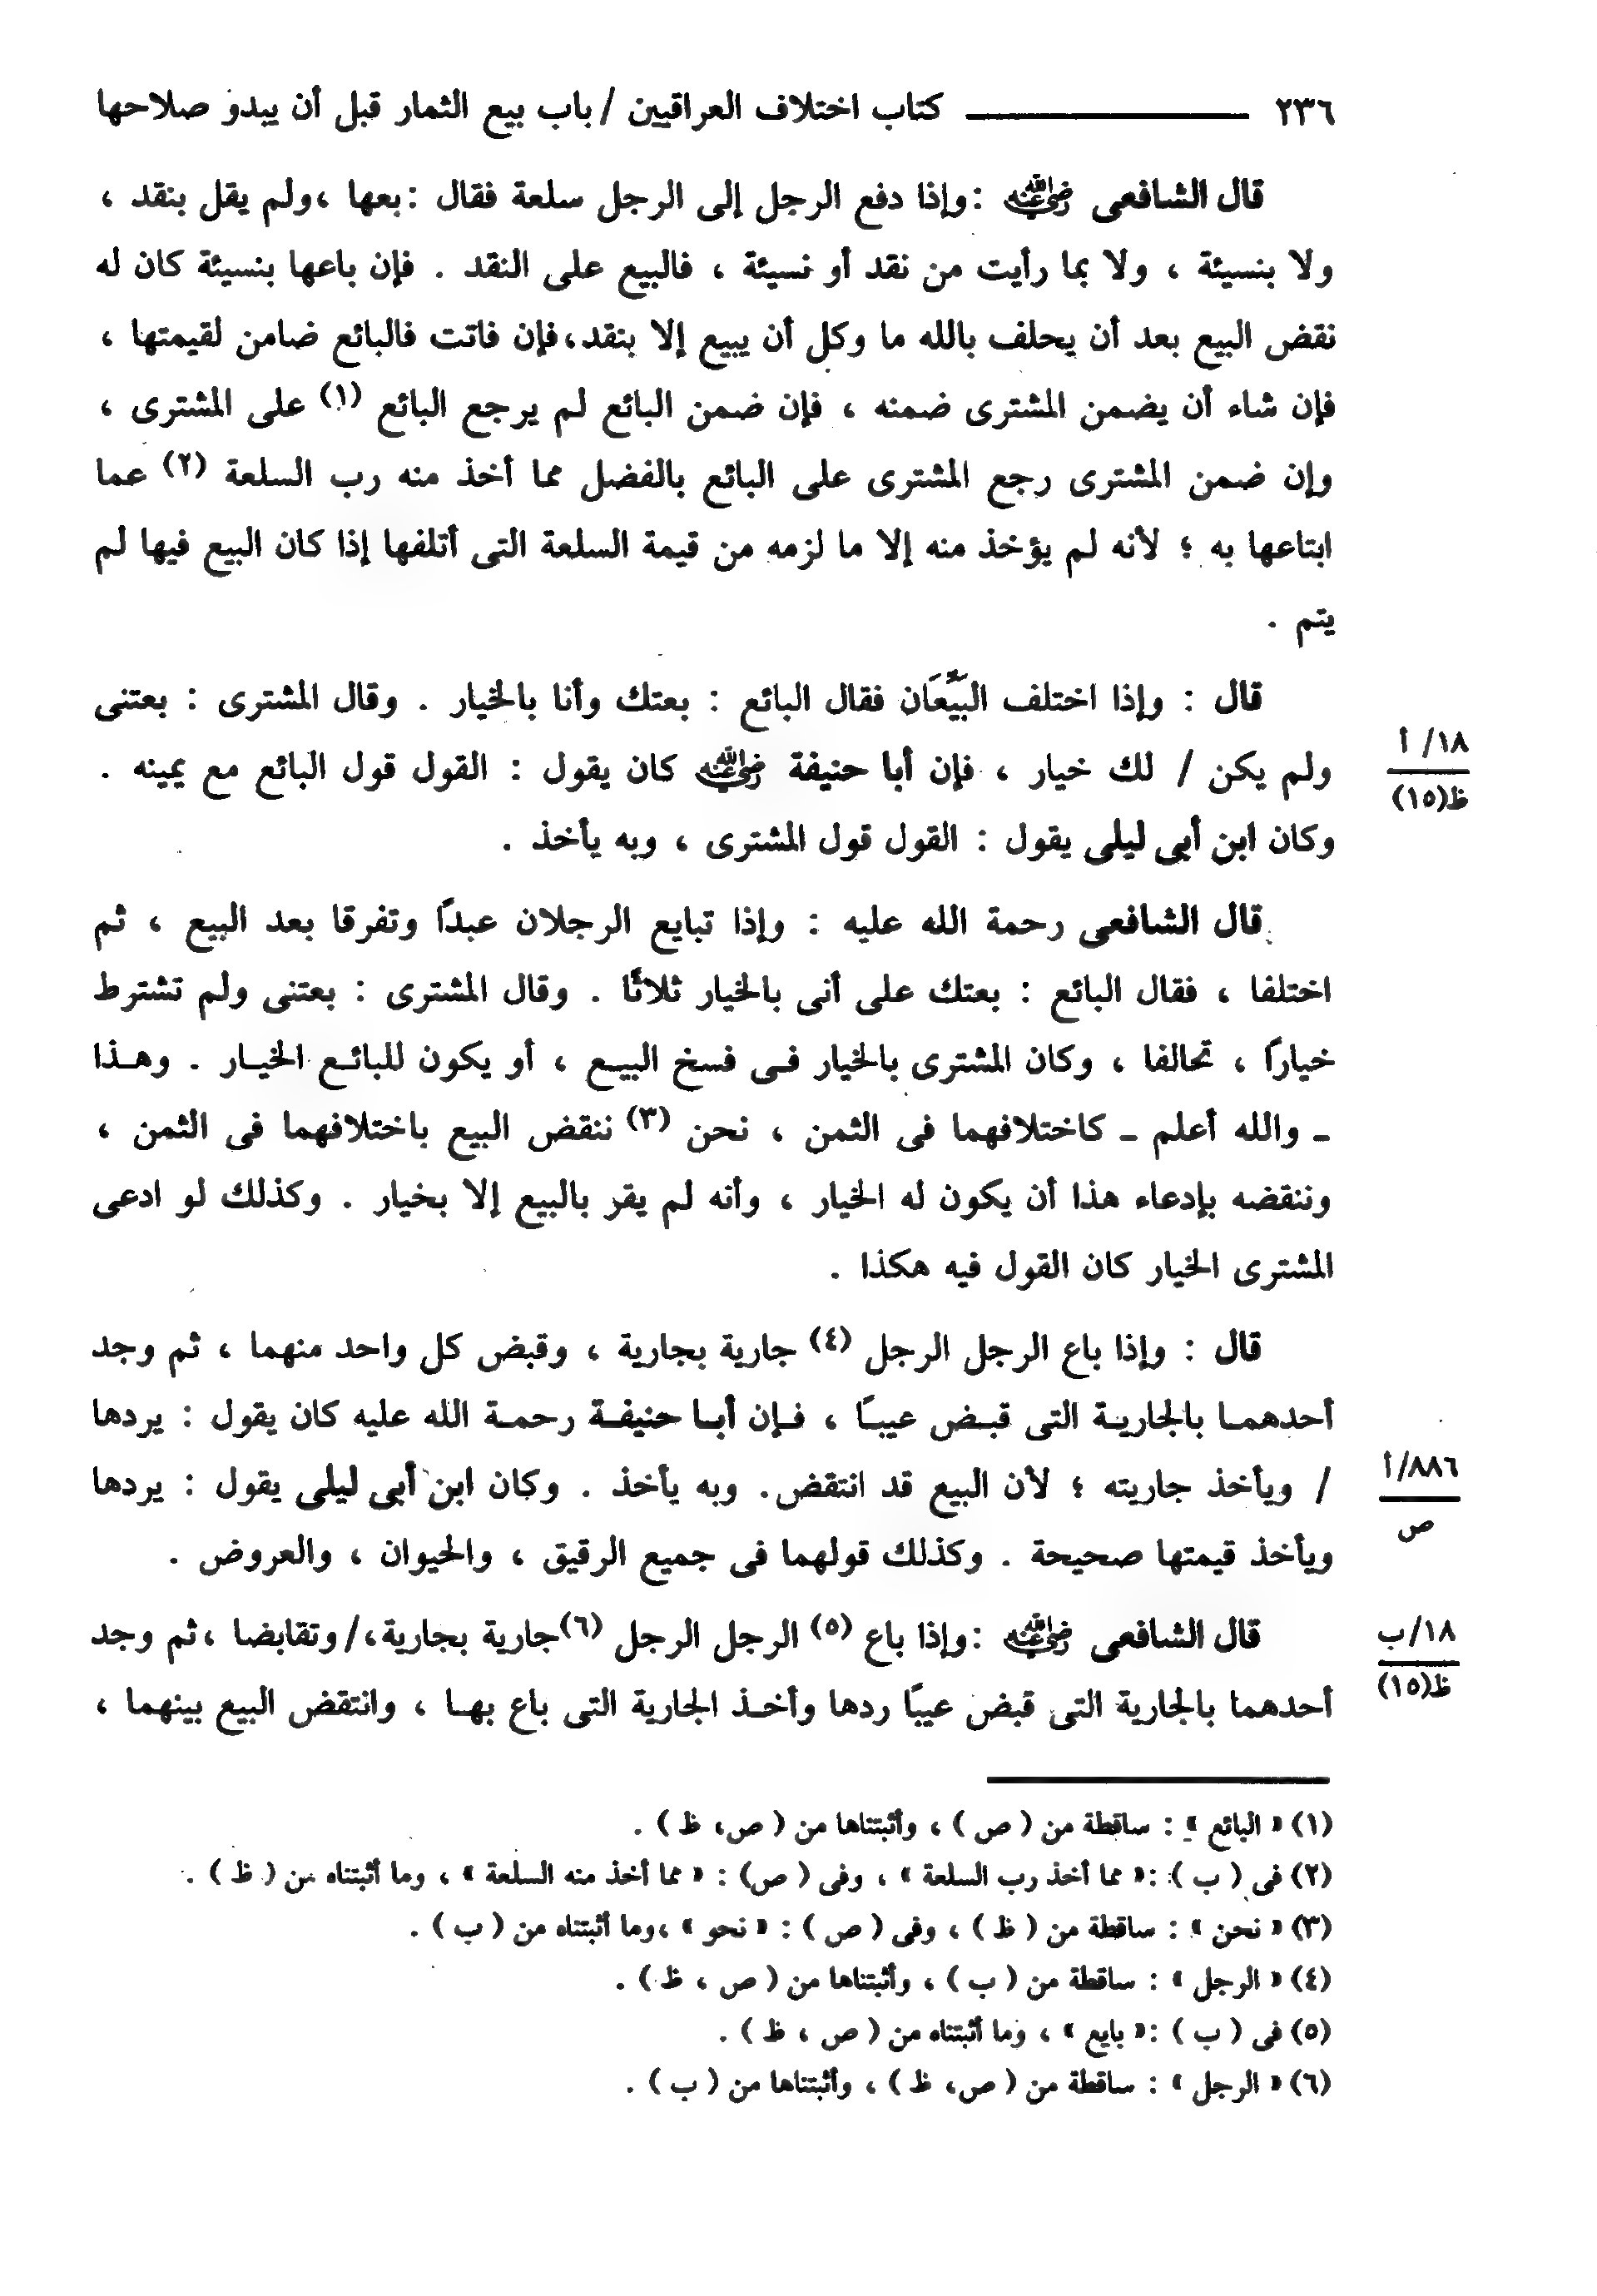 ٢٣٦ ــــــــــ كتاب اختلاف العراقيين / باب بيع الثمار قبل أن يبدو صلاحها
قال الشافعى رضي الله عنه : وإذا دفع الرجل إلى الرجل سلعة فقال : بعها ، ولم يقل بنقد ،
ولا بنسيئة ، ولا بما رأيت من نقد أو نسيئة ، فالبيع على النقد . فإن باعها بنسيئة كان له
نقض البيع بعد أن يحلف بالله ما وكل أن يبيع إلا بنقد، فإن فاتت فالبائع ضامن لقيمتها ،
فإن شاء أن يضمن المشترى ضمنه ، فإن ضمن البائع لم يرجع البائع (١) على المشترى ،
وإن ضمن المشترى رجع المشترى على البائع بالفضل مما أخذ منه رب السلعة (٢) عما
ابتاعها به ؛ لأنه لم يؤخذ منه إلا ما لزمه من قيمة السلعة التى أتلفها إذا كان البيع فيها لم
يتم .
قال : وإذا اختلف البَيِّعَان فقال البائع : بعتك وأنا بالخيار . وقال المشترى : بعتنى
ولم يكن / لك خيار ، فإن أبا حنيفة رضي الله عنه كان يقول : القول قول البائع مع يمينه .
١٨/ أ
ظ(١٥)
وكان ابن أبى ليلى يقول : القول قول المشترى ، وبه يأخذ .
قال الشافعى رحمة الله عليه : وإذا تبايع الرجلان عبدًا وتفرقا بعد البيع ، ثم
اختلفا ، فقال البائع : بعتك على أنى بالخيار ثلاثًا . وقال المشترى : بعتنى ولم تشترط
خيارًا ، تحالفا ، وكان المشترى بالخيار فى فسخ البيع ، أو يكون للبائع الخيار . وهذا
ـ والله أعلم ـ كاختلافهما فى الثمن ، نحن (٣) ننقض البيع باختلافهما فى الثمن ،
وننقضه بإدعاء هذا أن يكون له الخيار ، وأنه لم يقر بالبيع إلا بخيار . وكذلك لو ادعى
المشترى الخيار كان القول فيه هكذا .
قال : وإذا باع الرجل الرجل (٤) جارية بجارية ، وقبض كل واحد منهما ، ثم وجد
أحدهما بالجارية التى قبض عيبًا ، فإن أبا حنيفة رحمة الله عليه كان يقول : يردها
/ ويأخذ جاريته ؛ لأن البيع قد انتقض. وبه يأخذ . وكان ابن أبى ليلى يقول : يردها
٨٨٦/أ
ص
ويأخذ قيمتها صحيحة . وكذلك قولهما فى جميع الرقيق ، والحيوان ، والعروض .
قال الشافعى رضي الله عنه : وإذا باع (٥) الرجل الرجل (٦) جارية بجارية،/ وتقابضا ، ثم وجد
١٨/ب
ظ(١٥)
أحدهما بالجارية التى قبض عيبًا ردها وأخذ الجارية التى باع بها ، وانتقض البيع بينهما ،
(١) « البائع » : ساقطة من ( ص ) ، وأثبتناها من ( ص، ظ ) .
(٢) فى ( ب ) : « مما أخذ رب السلعة » ، وفى ( ص) : « مما أخذ منه السلعة » ، وما أثبتناه من ( ظ ) .
(٣) « نحن » : ساقطة من ( ظ ) ، وفى ( ص ) : « نحو » ، وما أثبتناه من ( ب ) .
(٤) « الرجل » : ساقطة من ( ب ) ، وأثبتناها من ( ص ، ظ ) .
(٥) فى ( ب ) : « بايع » ، وما أثبتناه من ( ص ، ظ ) .
(٦) « الرجل » : ساقطة من ( ص، ظ ) ، وأثبتناها من ( ب ) .